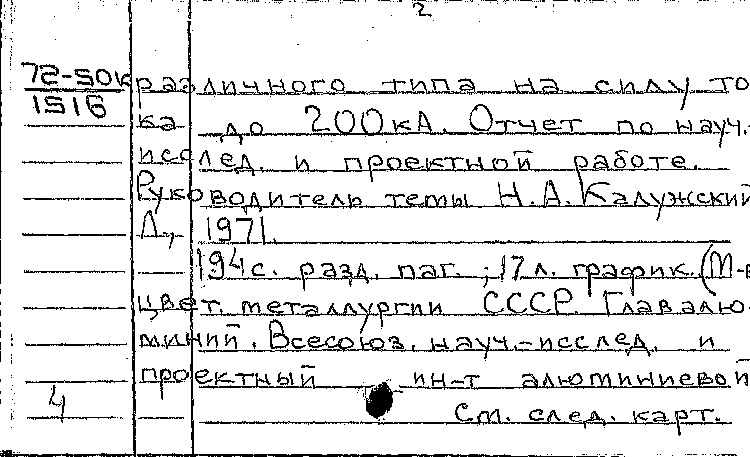 2
72-50к различного типа на силу то
1516
ка до 200кА. Отчет по науч.-
исслед. и проектной работе.
Руководитель темы Н.А.Калужский
Л., 1971.
194с. разд. паг.; 17л. график. (М-в
цвет. металлургии СССР. Главалю-
миний. Всесоюз. науч.-исслед. и
проектный ин-т алюминиевой
4 См. след. карт.